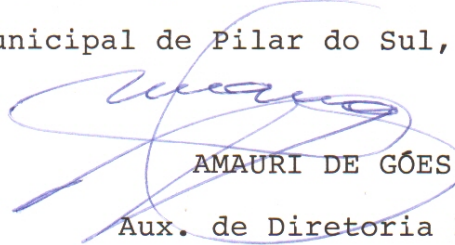 unicipal de Pilar do Sul,
AMAURI DE GÓES
Aux. de Diretoria